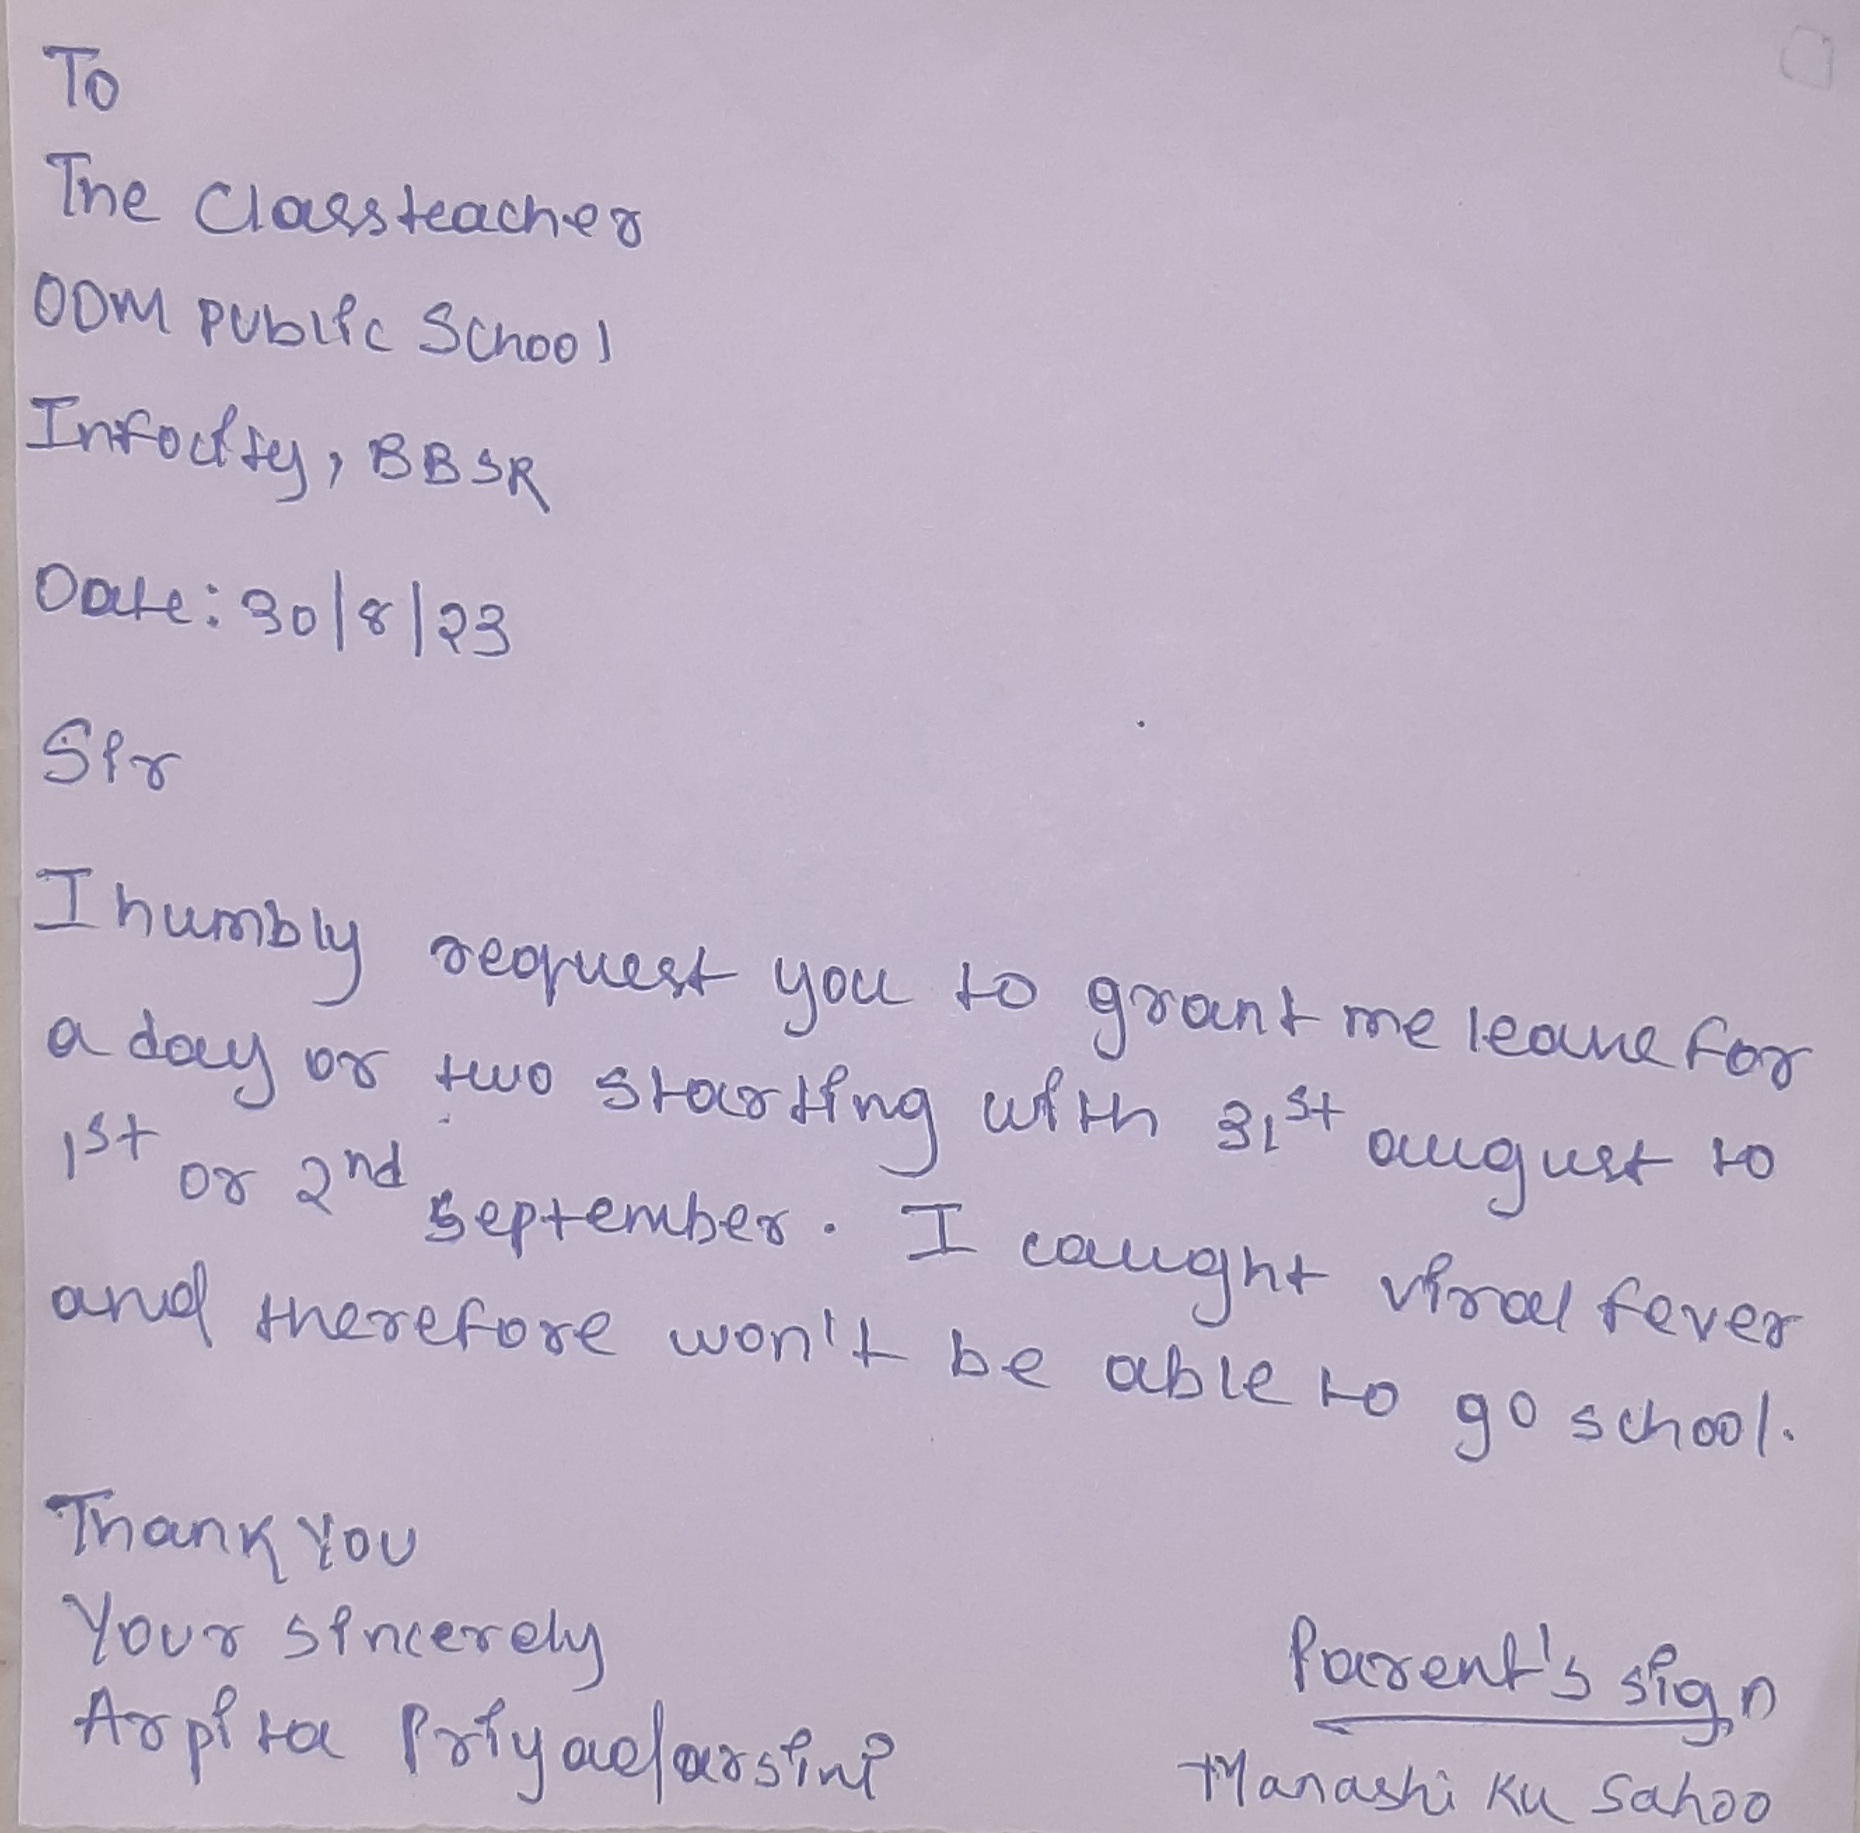 To
The Classteacher
ODM Public School
Infocity, BBSR
Date: 30/8/23
Sir
I humbly request you to grant me leave for
a day or two starting with 31st august to
1st or 2nd september. I caught viral fever
and therefore won't be able to go school.
Thank You
Your sincerely
Arpita Priyadarsini
Parent's sign
Manashi Ku Sahoo